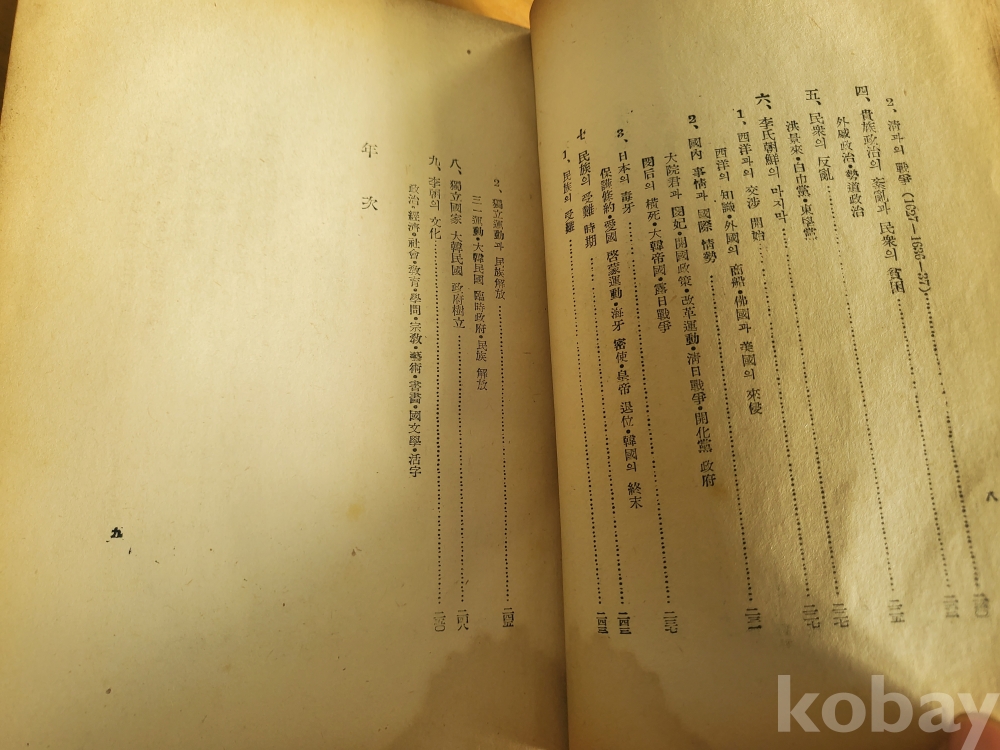 2、清과의 戰爭
四、貴族政治의 紊亂과 民衆의 貧困
外戚政治·勢道政治
五、民衆의 反亂
洪景來·白巾黨·東學黨
六、李氏朝鮮의 마지막
1、西洋과의 交涉 開始
西洋의 知識·外國의 商船·佛國과 美國의 來侵
2、國內 事情과 國際 情勢
大院君과 閔妃·開國政策·改革運動·淸日戰爭·開化黨 政府
閔后의 橫死·大韓帝國·露日戰爭 二三七
3、日本의 毒牙 二四三
保護條約·愛國 啓蒙運動·海牙 密使·皇帝 退位·韓國의 終末
七、民族의 受難 時期 二四三
1、民族의 受難
八
2、獨立運動과 民族解放 二四五
三一運動·大韓民國 臨時政府·民族 解放
八、獨立國家 大韓民國 政府樹立 二四八
九、李朝의 文化 二五〇
政治·經濟·社會·敎育·學問·宗敎·藝術·書畵·國文學·活字
年次
九
kobay